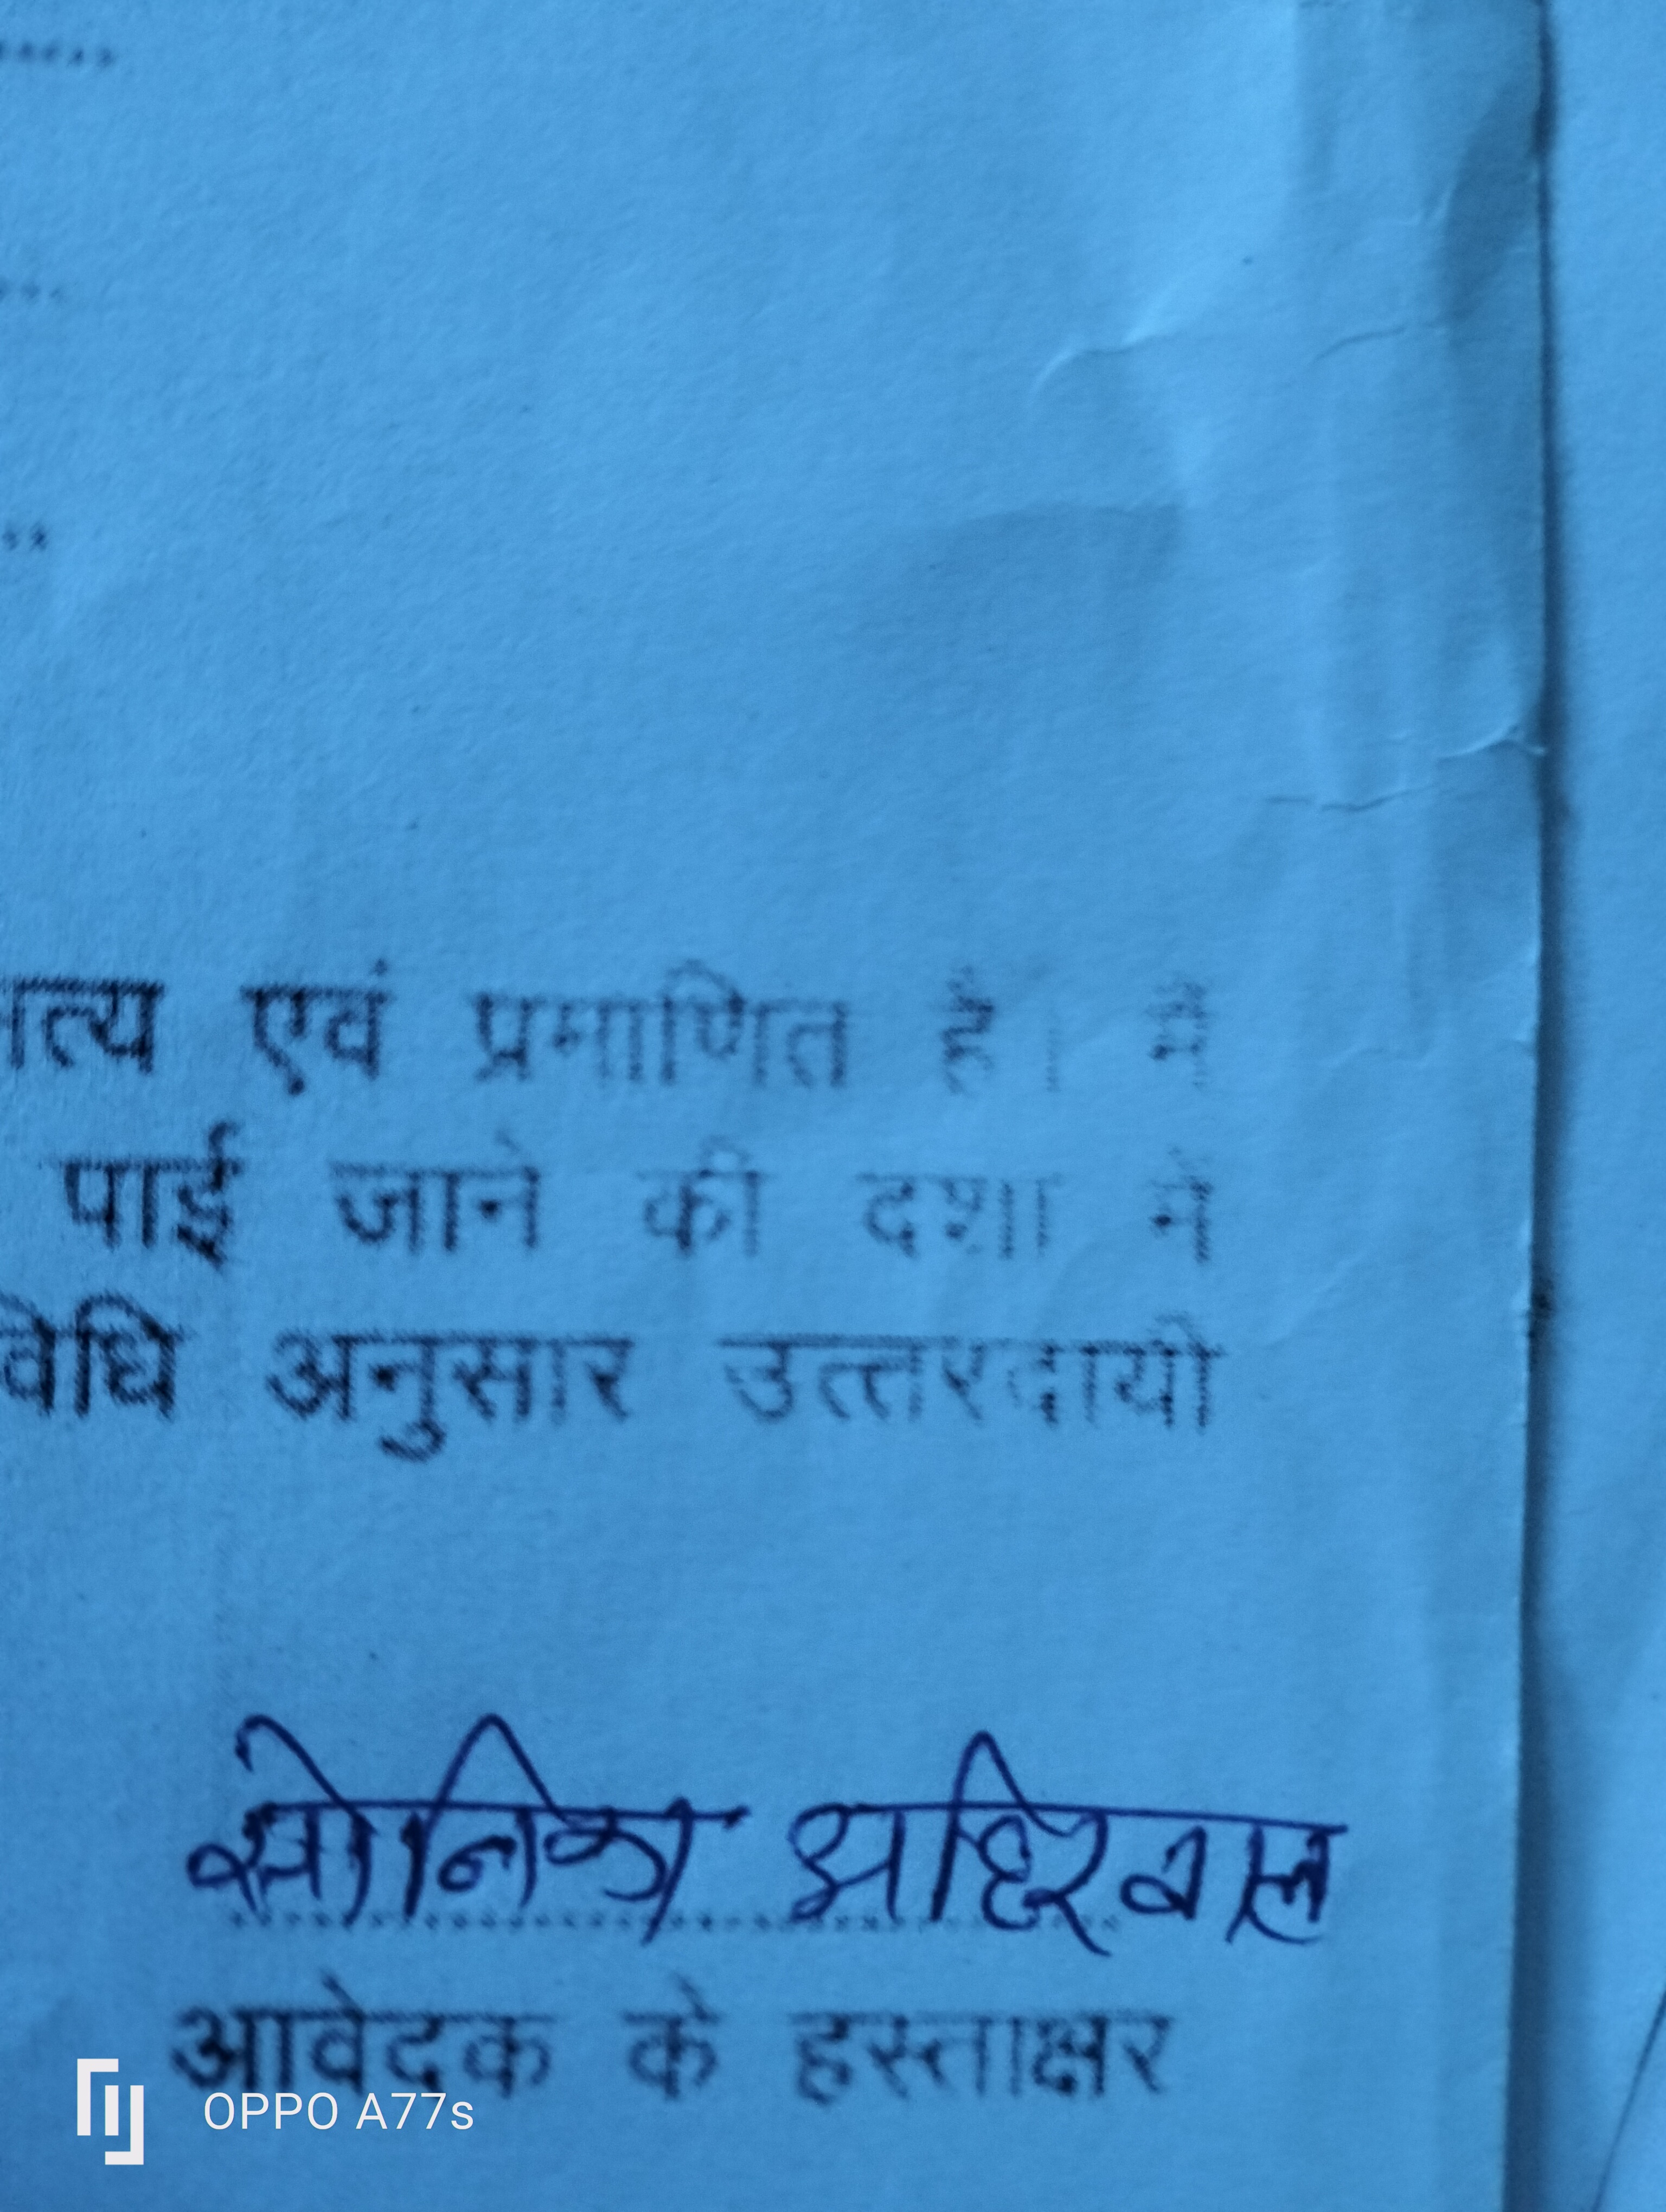 सत्य एवं प्रमाणित है। मैं
पाई जाने की दशा में
विधि अनुसार उत्तरदायी
सोनिका अहिरवाल
आवेदक के हस्ताक्षर
OPPO A77s